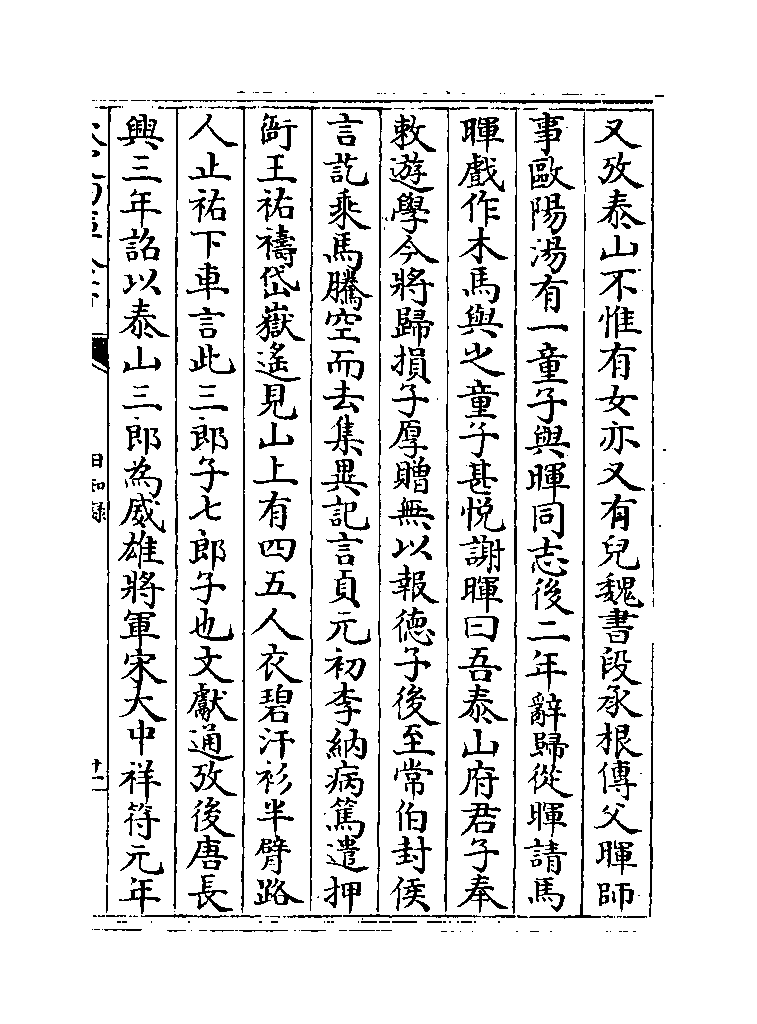 又攷泰山不惟有女亦又有兒魏書段承根傳父暉師
事歐陽湯有一童子與暉同志後二年辭歸從暉請馬
暉戲作木馬與之童子甚悅謝暉曰吾泰山府君子奉
敕遊學今將歸損子厚贈無以報德子後至常伯封侯
言訖乘馬騰空而去集異記言貞元初李納病篤遣押
衙王祐禱岱嶽遙見山上有四五人衣碧汗衫半臂路
人止祐下車言此三郎子七郎子也文獻通攷後唐長
興三年詔以泰山三郎為威雄將軍宋大中祥符元年
日知録